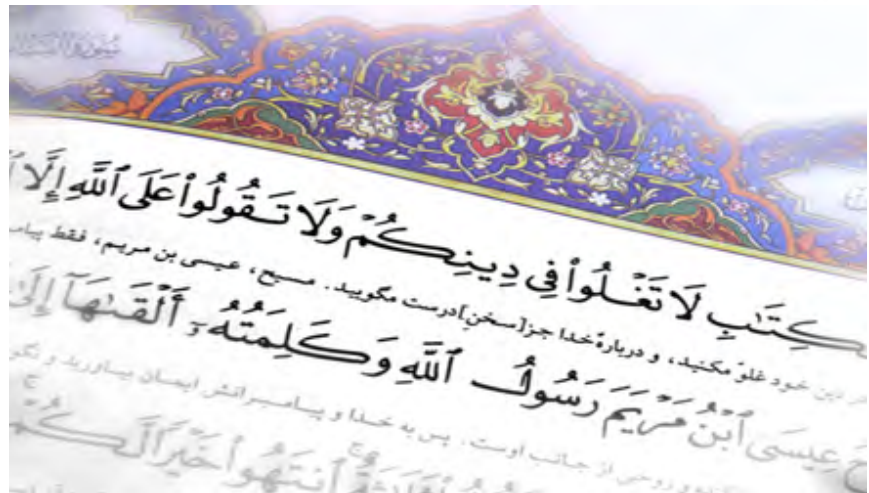 كِتَٰبِ لَا تَغْلُوا۟ فِى دِينِكُمْ وَلَا تَقُولُوا۟ عَلَى ٱللَّهِ إِلَّا
در دین خود غلوّ مکنید، و دربارهٔ خدا جز [سخنِ] درست مگویید. مسیح، عیسی بن مریم، فقط
عِيسَى ٱبْنُ مَرْيَمَ رَسُولُ ٱللَّهِ وَكَلِمَتُهُۥٓ أَلْقَىٰهَآ إِلَىٰ
و روحی از جانب اوست. پس به خدا و پیامبرانش ایمان بیاورید و
ٱنتَهُوا۟ خَيْرًا لَّكُمْ